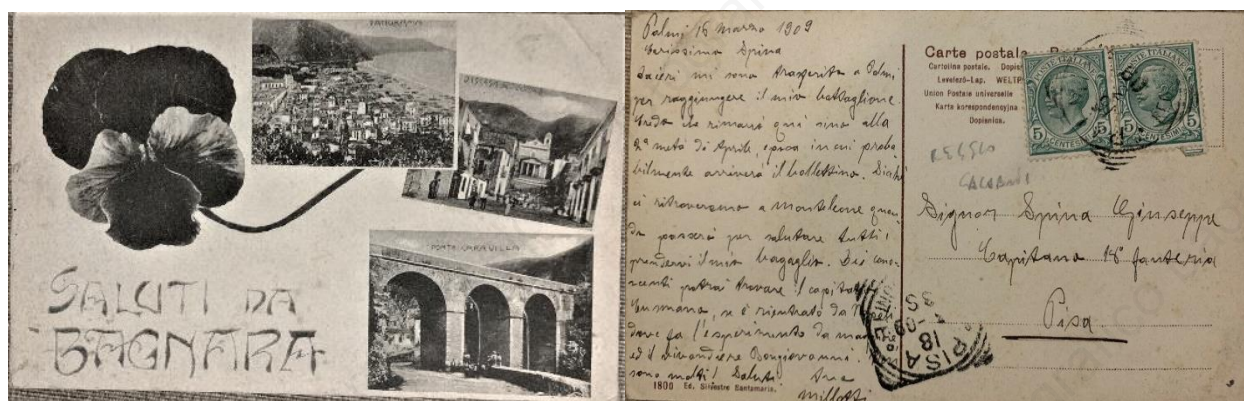 PANORAMA
PONTE CARAVILLA
SALUTI DA
BAGNARA
Palmi 16 Marzo 1909
Carissimo Spina
mi sono trasferito a Palmi
per raggiungere il mio battaglione
Credo che rimarrò quì sino alla
2ª metà di Aprile epoca in cui proba
bilmente arriverà il bollettino.
ci ritroveremo a Monteleone quan
do passerà per salutare tutti e
prendervi il mio bagaglio. Dei cono
scenti potrà trovare il capitano
se è rientrato da
dove fa l'esperimento da
ed il vivandiere Bongiovanni.
sono molti! Saluti
1800 Ed. Silvestre Santamaria
Carte postale
Cartolina postale. Dopis
Levelező-Lap. WELTP
Union Postale universelle
Karte korespondencyjna
Dopisnica.
POSTE ITALIANE
5 CENTESIMI 5
POSTE ITALIANE
5 CENTESIMI 5
REGGIO
CALABRIA
Signor Spina Giuseppe
Capitano 18° fanteria
Pisa
PISA
18